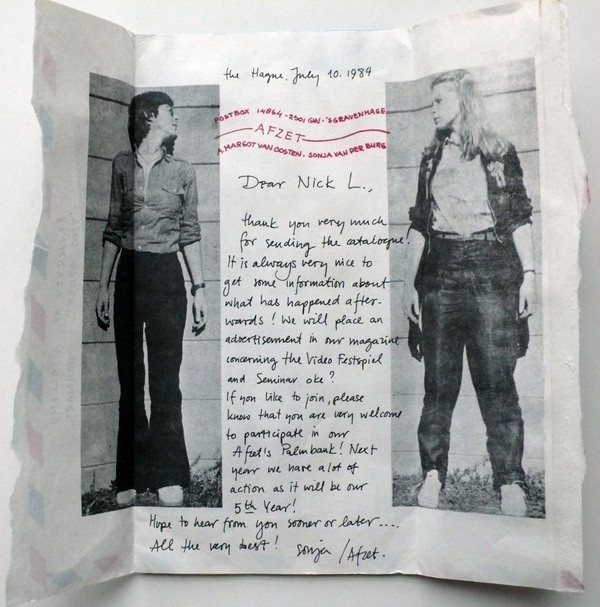 the Hague, July 10. 1984
POSTBOX 14864-2501 GW-'SGRAVENHAGE
AFZET
A. MARGOT VAN OOSTEN. SONJA VAN DER BURG
Dear Nick L.,
thank you very much
for sending the catalogue!
It is always very nice to
get some information about
what has happened after-
wards! We will place an
advertisement in our magazine
concerning the Video Festspiel
and Seminar oke?
If you like to join, please
know that you are very welcome
to participate in our
Afzet's Palmbank! Next
year we have a lot of
action as it will be our
5th Year!
Hope to hear from you sooner or later....
All the very best! Sonja /Afzet.